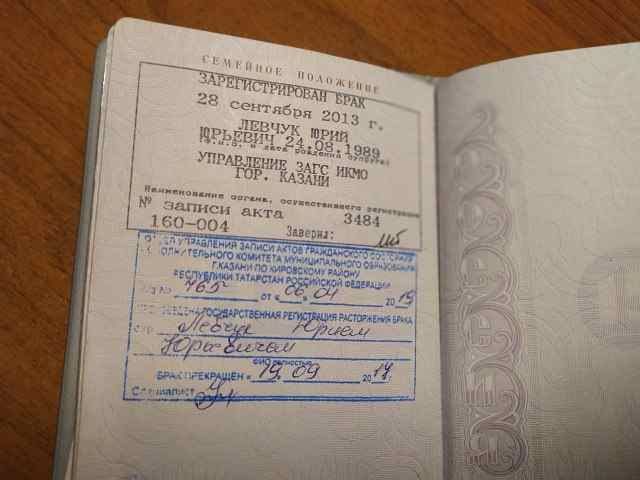 СЕМЕЙНОЕ ПОЛОЖЕНИЕ
ЗАРЕГИСТРИРОВАН БРАК
28 сентября 2013 г.
ЛЕВЧУК ЮРИЙ
ЮРЬЕВИЧ 24.08.1989
(Ф.И.О. и дата рождения супруга)
УПРАВЛЕНИЕ ЗАГС ИКМО
ГОР. КАЗАНИ
Наименование органа, осуществившего регистрацию
№ записи акта 3484
160-004 Заверил:
ОТДЕЛ УПРАВЛЕНИЯ ЗАПИСИ АКТОВ ГРАЖДАНСКОГО СОСТОЯНИЯ
ИСПОЛНИТЕЛЬНОГО КОМИТЕТА МУНИЦИПАЛЬНОГО ОБРАЗОВАНИЯ
Г.КАЗАНИ ПО КИРОВСКОМУ РАЙОНУ
РЕСПУБЛИКИ ТАТАРСТАН РОССИЙСКОЙ ФЕДЕРАЦИИ
№ 765 от « 06 04 2019
ГОСУДАРСТВЕННАЯ РЕГИСТРАЦИЯ РАСТОРЖЕНИЯ БРАКА
с гр. Левчук Юрием
Юрьевичем
ФИО полностью
БРАК ПРЕКРАЩЕН « 19 09 2017
Специалист